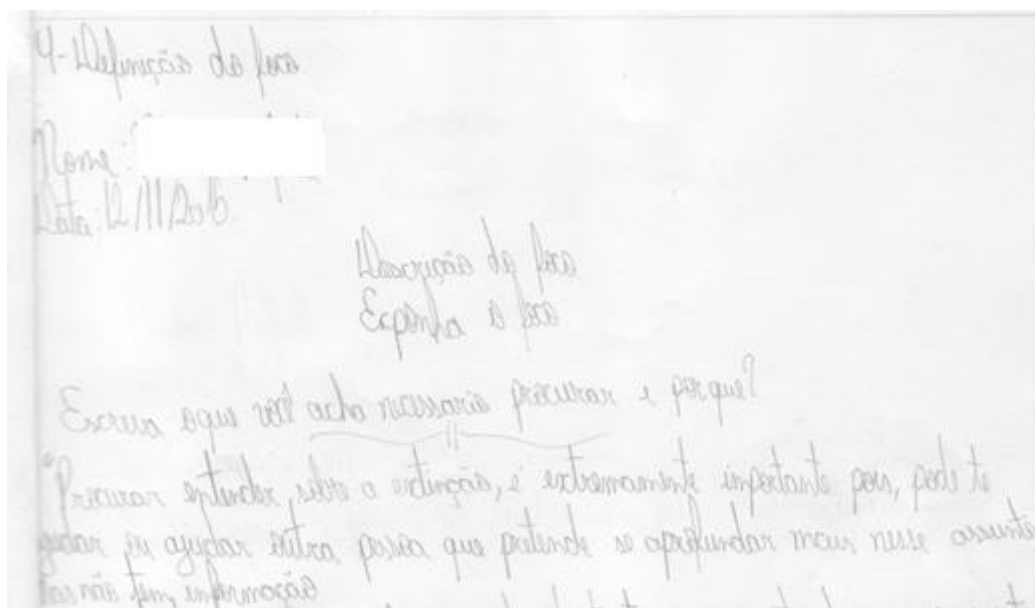 4-Definição do foco
Nome:
Data: 12/11/2016
Descrição do foco
Exponha o foco
Escreva oque você acha necessario procurar e porque?
"Procurar entender, sobre a extinção, é extremamente importante pois, pode te
ajudar ou ajudar outra pessoa que pretende se aprofundar mais nesse assunto
não tem informação